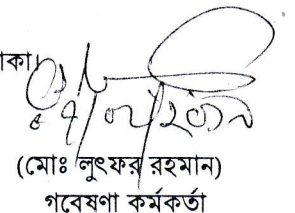 ঢাকা।
(মোঃ লুৎফর রহমান)
গবেষণা কর্মকর্তা